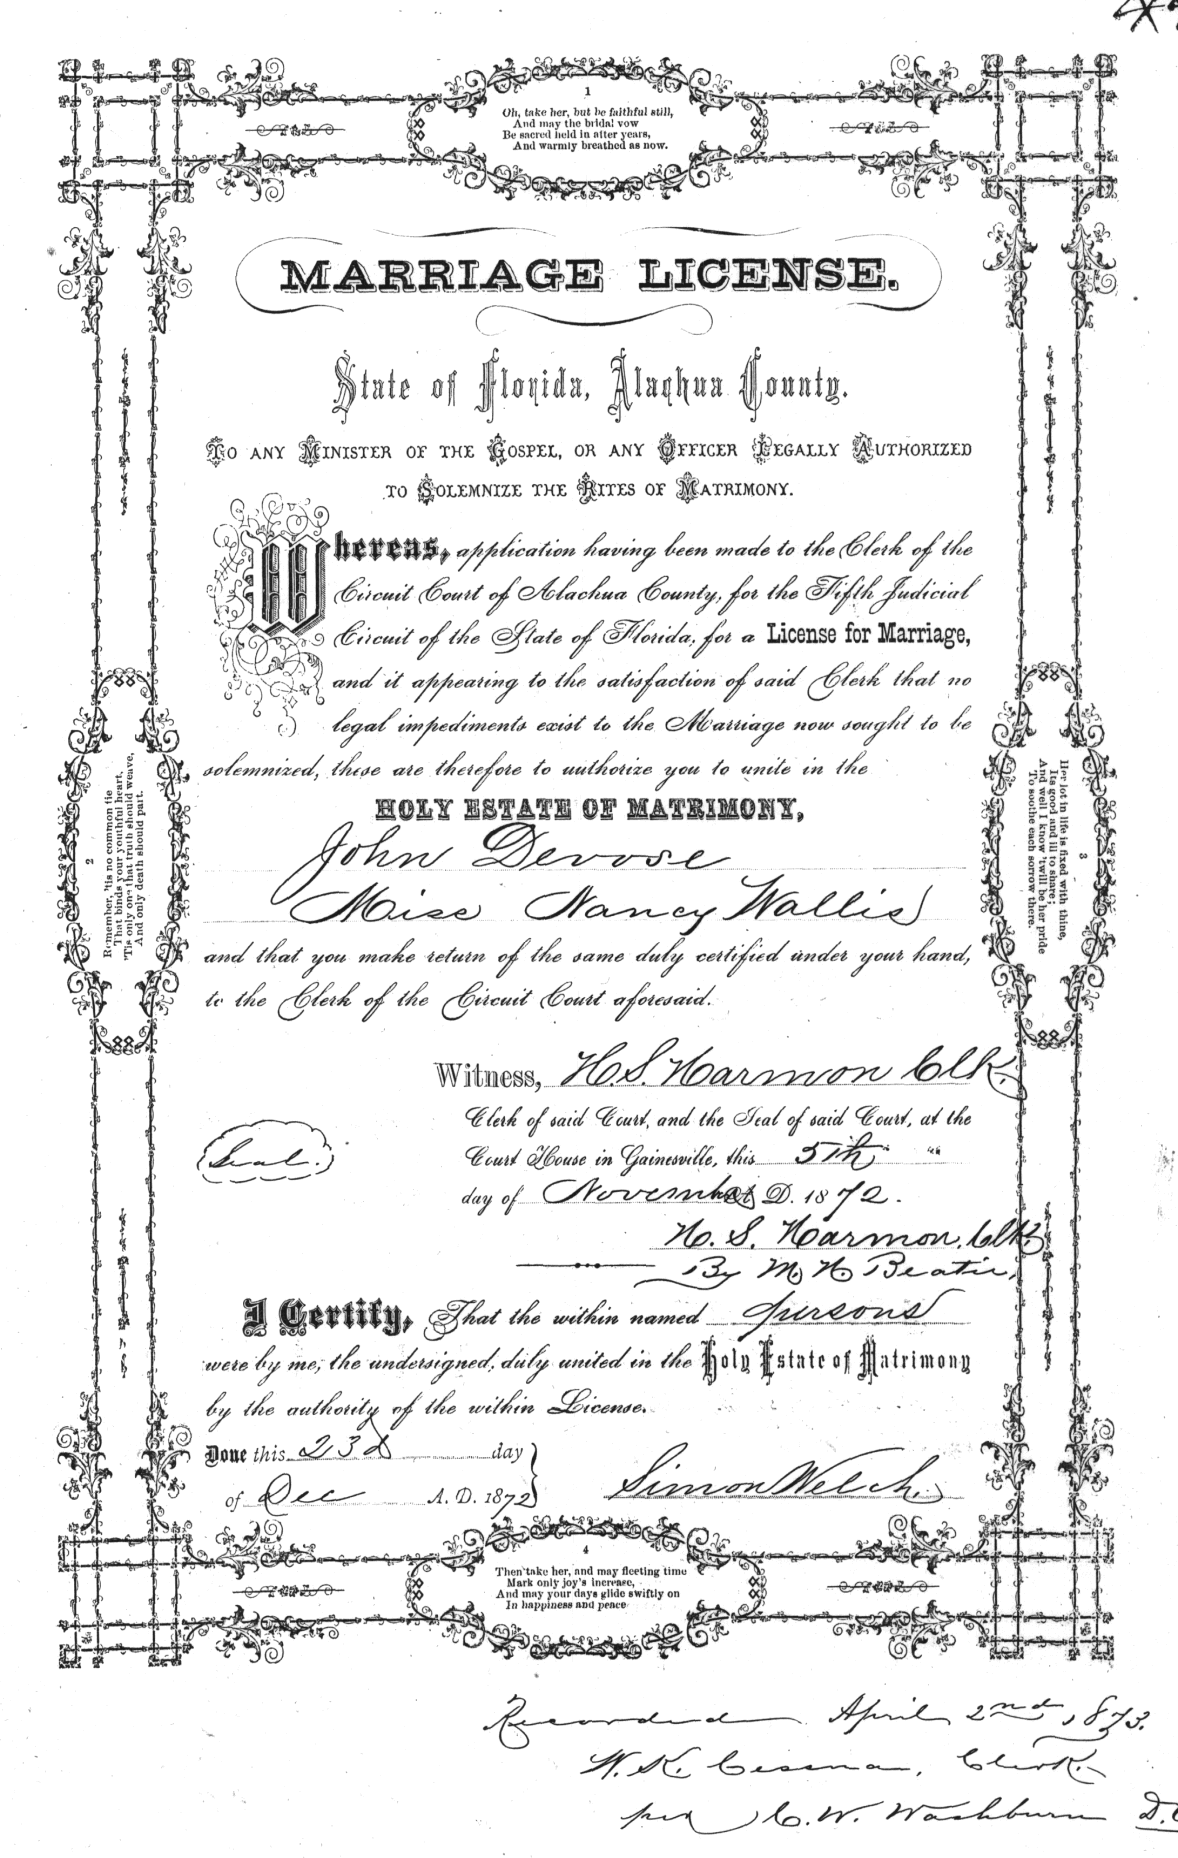 1
Oh, take her, but be faithful still,
And may the bridal vow
Be sacred held in after years,
And warmly breathed as now.
MARRIAGE LICENSE.
State of Florida, Alachua County.
TO ANY MINISTER OF THE GOSPEL, OR ANY OFFICER LEGALLY AUTHORIZED
TO SOLEMNIZE THE RITES OF MATRIMONY.
Whereas, application having been made to the Clerk of the
Circuit Court of Alachua County, for the Fifth Judicial
Circuit of the State of Florida, for a License for Marriage,
and it appearing to the satisfaction of said Clerk that no
legal impediments exist to the Marriage now sought to be
solemnized, these are therefore to authorize you to unite in the
HOLY ESTATE OF MATRIMONY,
John Devose
Miss Nancy Wallis
and that you make return of the same duly certified under your hand,
to the Clerk of the Circuit Court aforesaid.
2
Remember, 'tis no common tie
That binds your youthful heart,
'Tis only one that truth should weave,
And only death should part.
3
Her lot in life is fixed with thine,
Its good and ill to share;
And well I know 'twill be her pride
To soothe each sorrow there.
Witness, H. S. Harmon Clk.
Clerk of said Court, and the Seal of said Court, at the
Court House in Gainesville, this 5th "
day of November A. D. 1872.
Seal.
H. S. Harmon, Clk.
By M. H. Beatie.
I Certify, That the within named persons
were by me, the undersigned, duly united in the Holy Estate of Matrimony
by the authority of the within License.
Done this 23d day
of Dec A. D. 1872
Simon Welch.
4
Then take her, and may fleeting time
Mark only joy's increase,
And may your days glide swiftly on
In happiness and peace
Recorded April 2nd, 1873.
W. K. Cessna, Clerk.
per C. W. Washburn D.